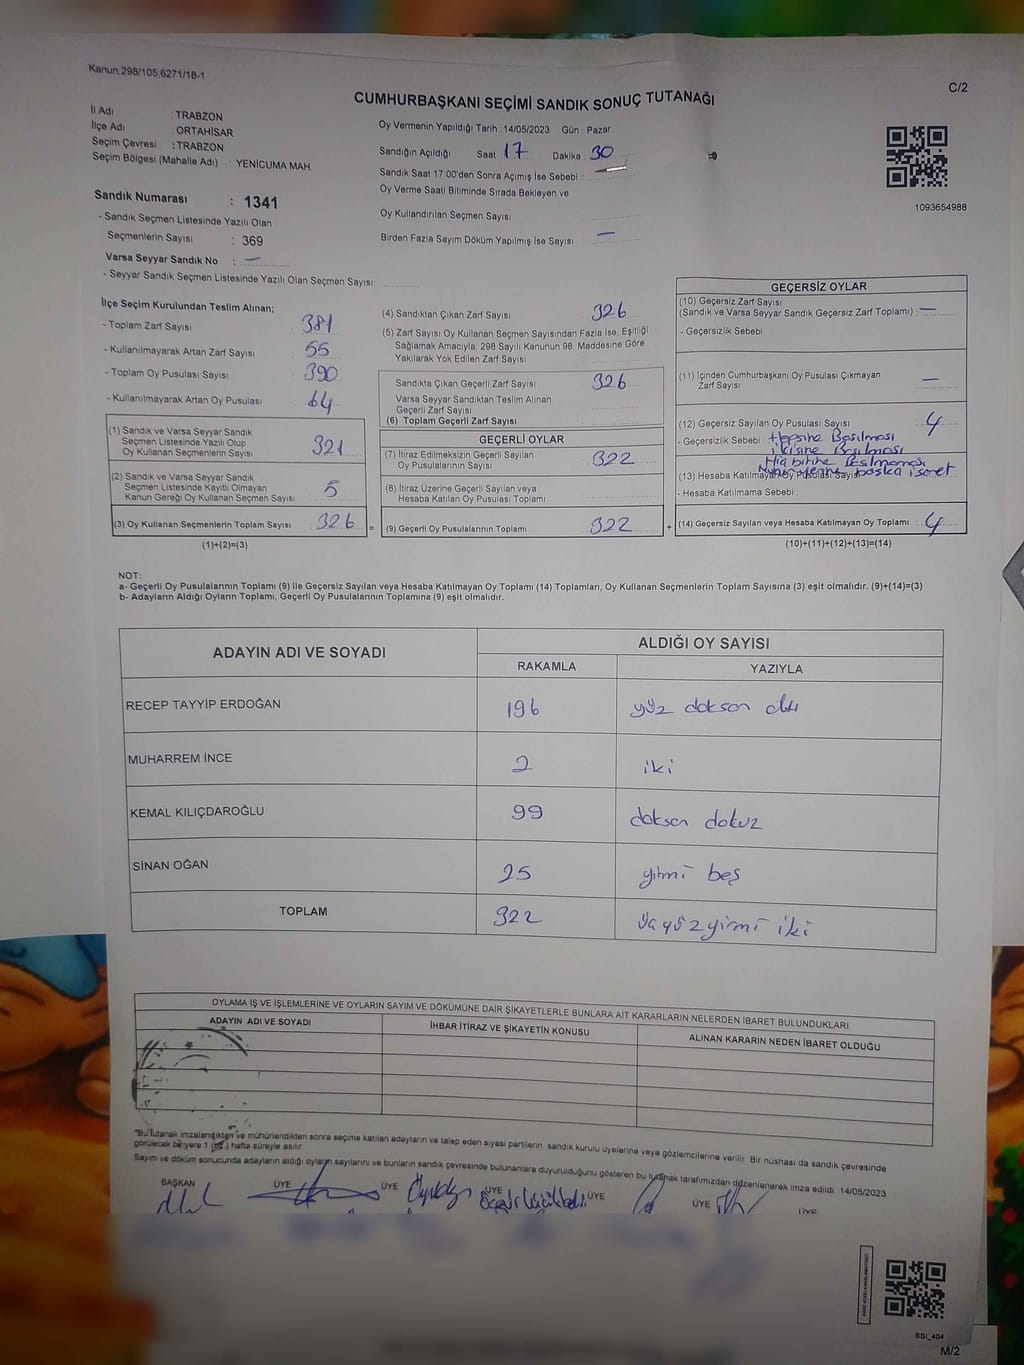 Kanun:298/105,6271/18-1
C/2
CUMHURBAŞKANI SEÇİMİ SANDIK SONUÇ TUTANAĞI
İl Adı : TRABZON
İlçe Adı : ORTAHİSAR
Seçim Çevresi : TRABZON
Seçim Bölgesi (Mahalle Adı) : YENİCUMA MAH
Oy Vermenin Yapıldığı Tarih : 14/05/2023 Gün : Pazar
Sandığın Açıldığı Saat 17 Dakika : 30
Sandık Saat 17:00'den Sonra Açımış İse Sebebi :
Oy Verme Saati Bitiminde Sırada Bekleyen ve
Oy Kullandırılan Seçmen Sayısı
Birden Fazla Sayım Döküm Yapılmış İse Sayısı : —
1093654988
Sandık Numarası : 1341
- Sandık Seçmen Listesinde Yazılı Olan
Seçmenlerin Sayısı : 369
Varsa Seyyar Sandık No : —
- Seyyar Sandık Seçmen Listesinde Yazılı Olan Seçmen Sayısı:
İlçe Seçim Kurulundan Teslim Alınan;
- Toplam Zarf Sayısı : 381
- Kullanılmayarak Artan Zarf Sayısı : 55
- Toplam Oy Pusulası Sayısı : 390
- Kullanılmayarak Artan Oy Pusulası : 64
(1) Sandık ve Varsa Seyyar Sandık
Seçmen Listesinde Yazılı Olup
Oy Kullanan Seçmenlerin Sayısı : 321
(2) Sandık ve Varsa Seyyar Sandık
Seçmen Listesinde Kayıtlı Olmayan
Kanun Gereği Oy Kullanan Seçmen Sayısı : 5
(3) Oy Kullanan Seçmenlerin Toplam Sayısı : 326 =
(1)+(2)=(3)
(4) Sandıktan Çıkan Zarf Sayısı : 326
(5) Zarf Sayısı Oy Kullanan Seçmen Sayısından Fazla İse, Eşitliği
Sağlamak Amacıyla; 298 Sayılı Kanunun 98. Maddesine Göre
Yakılarak Yok Edilen Zarf Sayısı :
Sandıkta Çıkan Geçerli Zarf Sayısı : 326
Varsa Seyyar Sandıktan Teslim Alınan
Geçerli Zarf Sayısı :
(6) Toplam Geçerli Zarf Sayısı :
GEÇERLİ OYLAR
(7) İtiraz Edilmeksizin Geçerli Sayılan
Oy Pusulalarının Sayısı : 322
(8) İtiraz Üzerine Geçerli Sayılan veya
Hesaba Katılan Oy Pusulası Toplamı :
(9) Geçerli Oy Pusulalarının Toplamı : 322 +
GEÇERSİZ OYLAR
(10) Geçersiz Zarf Sayısı
(Sandık ve Varsa Seyyar Sandık Geçersiz Zarf Toplamı) : —
- Geçersizlik Sebebi :
(11) İçinden Cumhurbaşkanı Oy Pusulası Çıkmayan
Zarf Sayısı : —
(12) Geçersiz Sayılan Oy Pusulası Sayısı : 4
- Geçersizlik Sebebi : Hepsine Basılması
ikisine Basılması
Hiç birine Basılmaması
başka işaret
(13) Hesaba Katılmayan Oy Pusulası Sayısı
- Hesaba Katılmama Sebebi :
(14) Geçersiz Sayılan veya Hesaba Katılmayan Oy Toplamı : 4
(10)+(11)+(12)+(13)=(14)
NOT:
a- Geçerli Oy Pusulalarının Toplamı (9) ile Geçersiz Sayılan veya Hesaba Katılmayan Oy Toplamı (14) Toplamları, Oy Kullanan Seçmenlerin Toplam Sayısına (3) eşit olmalıdır. (9)+(14)=(3)
b- Adayların Aldığı Oyların Toplamı, Geçerli Oy Pusulalarının Toplamına (9) eşit olmalıdır.
ADAYIN ADI VE SOYADI
ALDIĞI OY SAYISI
RAKAMLA YAZIYLA
RECEP TAYYİP ERDOĞAN 196 yüz doksan altı
MUHARREM İNCE 2 iki
KEMAL KILIÇDAROĞLU 99 doksan dokuz
SİNAN OĞAN 25 yirmi beş
TOPLAM 322 üç yüz yirmi iki
OYLAMA İŞ VE İŞLEMLERİNE VE OYLARIN SAYIM VE DÖKÜMÜNE DAİR ŞİKAYETLERLE BUNLARA AİT KARARLARIN NELERDEN İBARET BULUNDUKLARI
ADAYIN ADI VE SOYADI İHBAR İTİRAZ VE ŞİKAYETİN KONUSU ALINAN KARARIN NEDEN İBARET OLDUĞU
"Bu tutanak imzalandıkten ve mühürlendikten sonra seçime katılan adayların ve talep eden siyasi partilerin sandık kurulu üyelerine veya gözlemcilerine verilir. Bir nüshası da sandık çevresinde
görülecek bir yere 1 (bir) hafta süreyle asılır
Sayım ve döküm sonucunda adayların aldığı oyların sayılarını ve bunların sandık çevresinde bulunanlara duyurulduğunu gösteren bu tutanak tarafımızdan düzenlenerek imza edildi. 14/05/2023
BAŞKAN ÜYE ÜYE ÜYE ÜYE ÜYE ÜYE
SSI_404
M/2